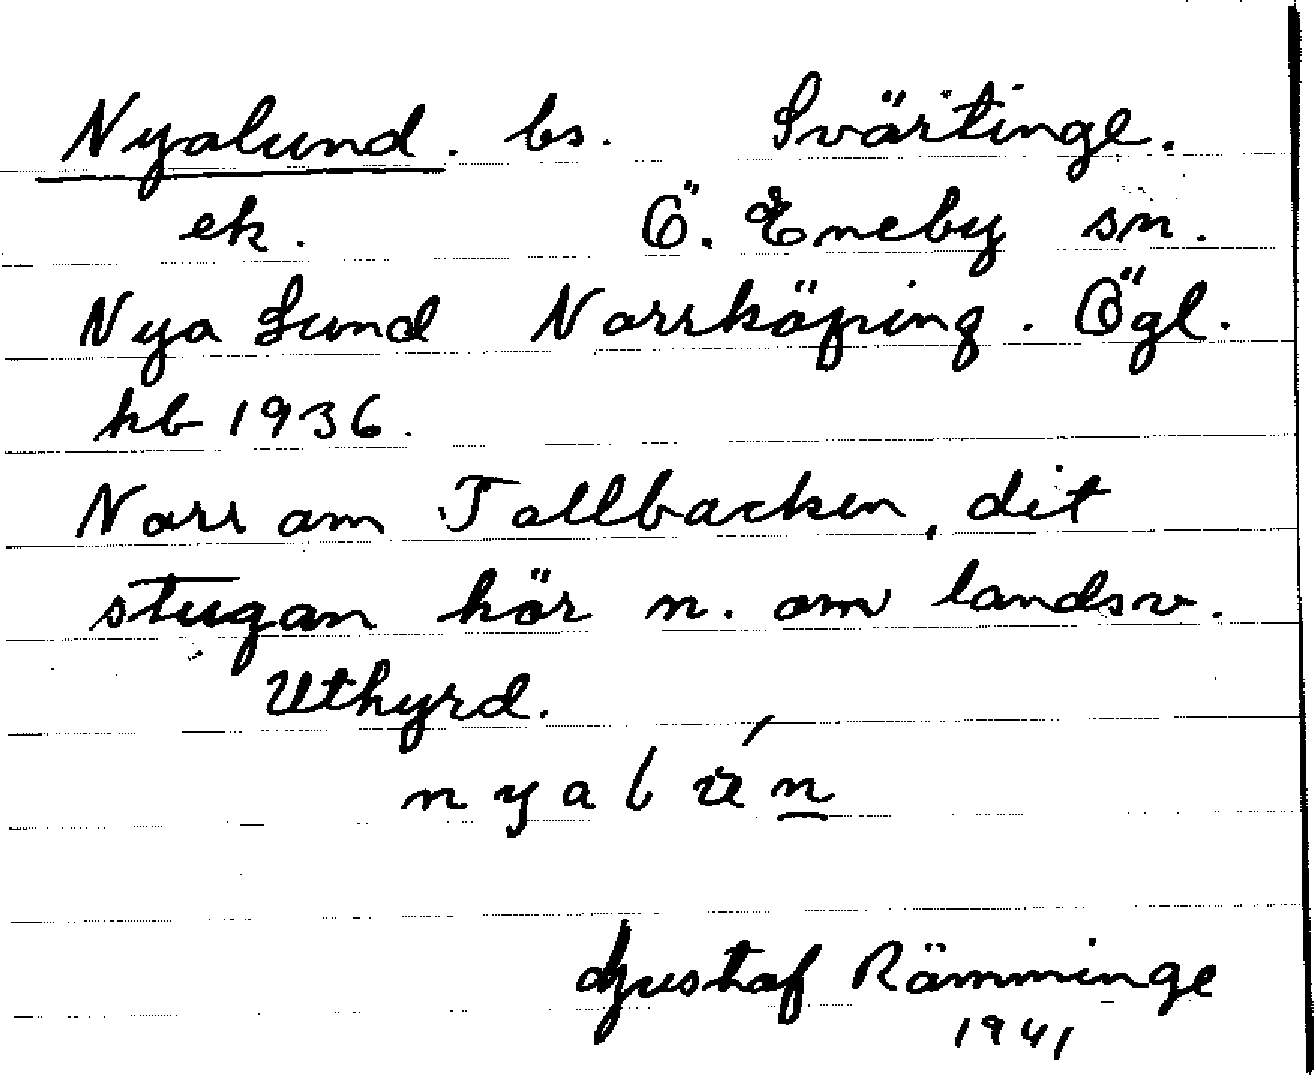 Nyalund. bs. Svärtinge.
ek. Ö. Eneby sn.
Nya Lund Norrköping. Ögl.
hb 1936.
Norr om Tallbacken, dit
stugan hör n. om landsv.
Uthyrd.
Gustaf Rämminge
1941